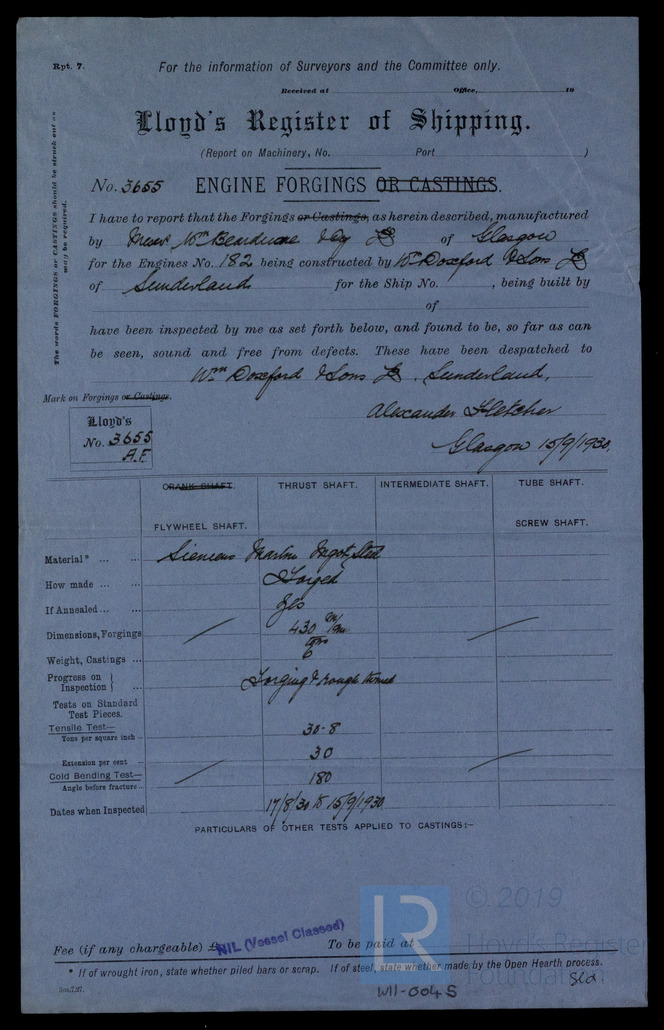 Rpt. 7.
For the information of Surveyors and the Committee only.
Received at Office, 19
Lloyd's Register of Shipping.
(Report on Machinery, No. Port )
The words FORGINGS or CASTINGS should be struck out as may be required.
No. 3655 ENGINE FORGINGS OR CASTINGS.
I have to report that the Forgings or Castings, as herein described, manufactured
by Messrs Wm Beardmore & Co Ld of Glasgow
for the Engines No. 182 being constructed by Wm Doxford & Sons Ld
of Sunderland for the Ship No. , being built by
of
have been inspected by me as set forth below, and found to be, so far as can
be seen, sound and free from defects. These have been despatched to
Wm Doxford & Sons Ld, Sunderland.
Mark on Forgings or Castings.
Alexander Fletcher
Lloyd's
No. 3655
A.F.
Glasgow 15/9/1930.
CRANK SHAFT. THRUST SHAFT. INTERMEDIATE SHAFT. TUBE SHAFT.
FLYWHEEL SHAFT. SCREW SHAFT.
Material* ... ... Siemens Martin Ingot Steel
How made ... ... Forged
If Annealed ... ... Yes
Dimensions, Forgings 430 m/m
Weight, Castings ... 6
Progress on Inspection } ... Forging & rough turned
Tests on Standard Test Pieces.
Tensile Test—
Tons per square inch ... 30-8
Extension per cent ... 30
Cold Bending Test—
Angle before fracture ... 180
Dates when Inspected 17/8/30 to 15/9/1930
PARTICULARS OF OTHER TESTS APPLIED TO CASTINGS:—
© 2019
Lloyd's Register
Foundation
LR
Fee (if any chargeable) £ NIL (Vessel Classed) To be paid at
* If of wrought iron, state whether piled bars or scrap. If of steel, state whether made by the Open Hearth process.
W11-0045